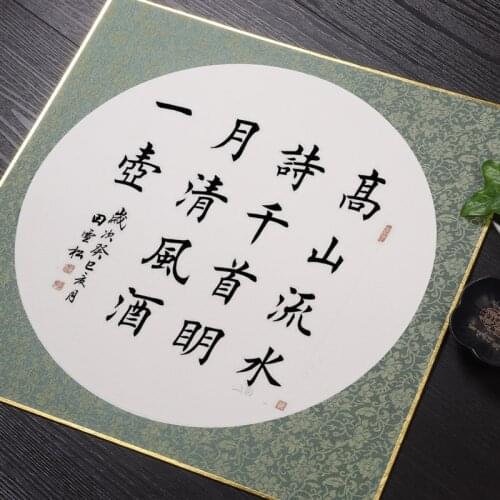 高山流水
詩千首明
月清風酒
一壺
歲次癸巳亥月
田雪松